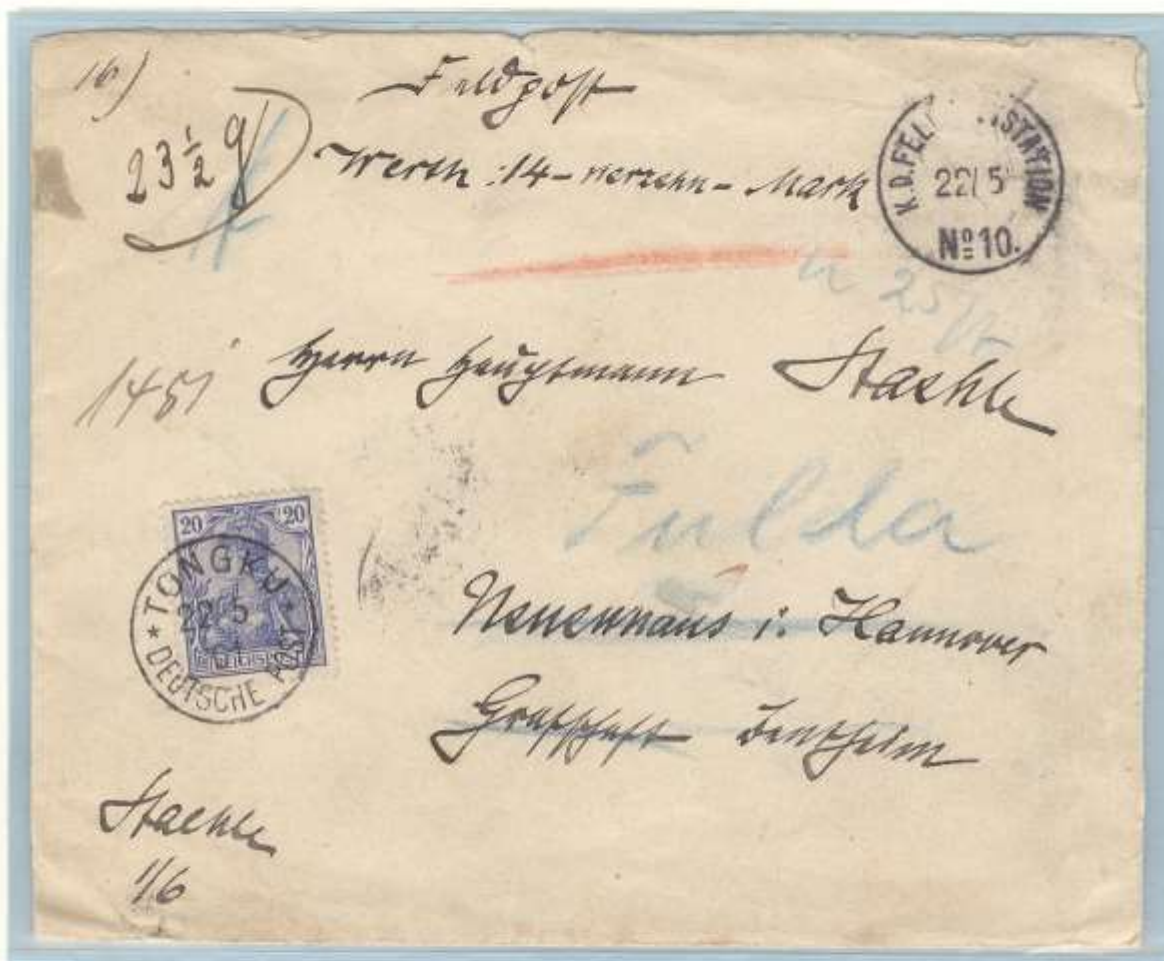 16)
Feldpost
23 1/2 g
Werth: 14 - vierzehn - Mark
K.D. FEL STATION
22/5
Nº 10.
Herrn Hauptmann Staehle
1451
Fulda
20 20
TONGKU
22/5
01
REICHSPOST
* DEUTSCHE POST *
Neuenhaus i. Hannover
Grafschaft Bentheim
Staehle
1/6